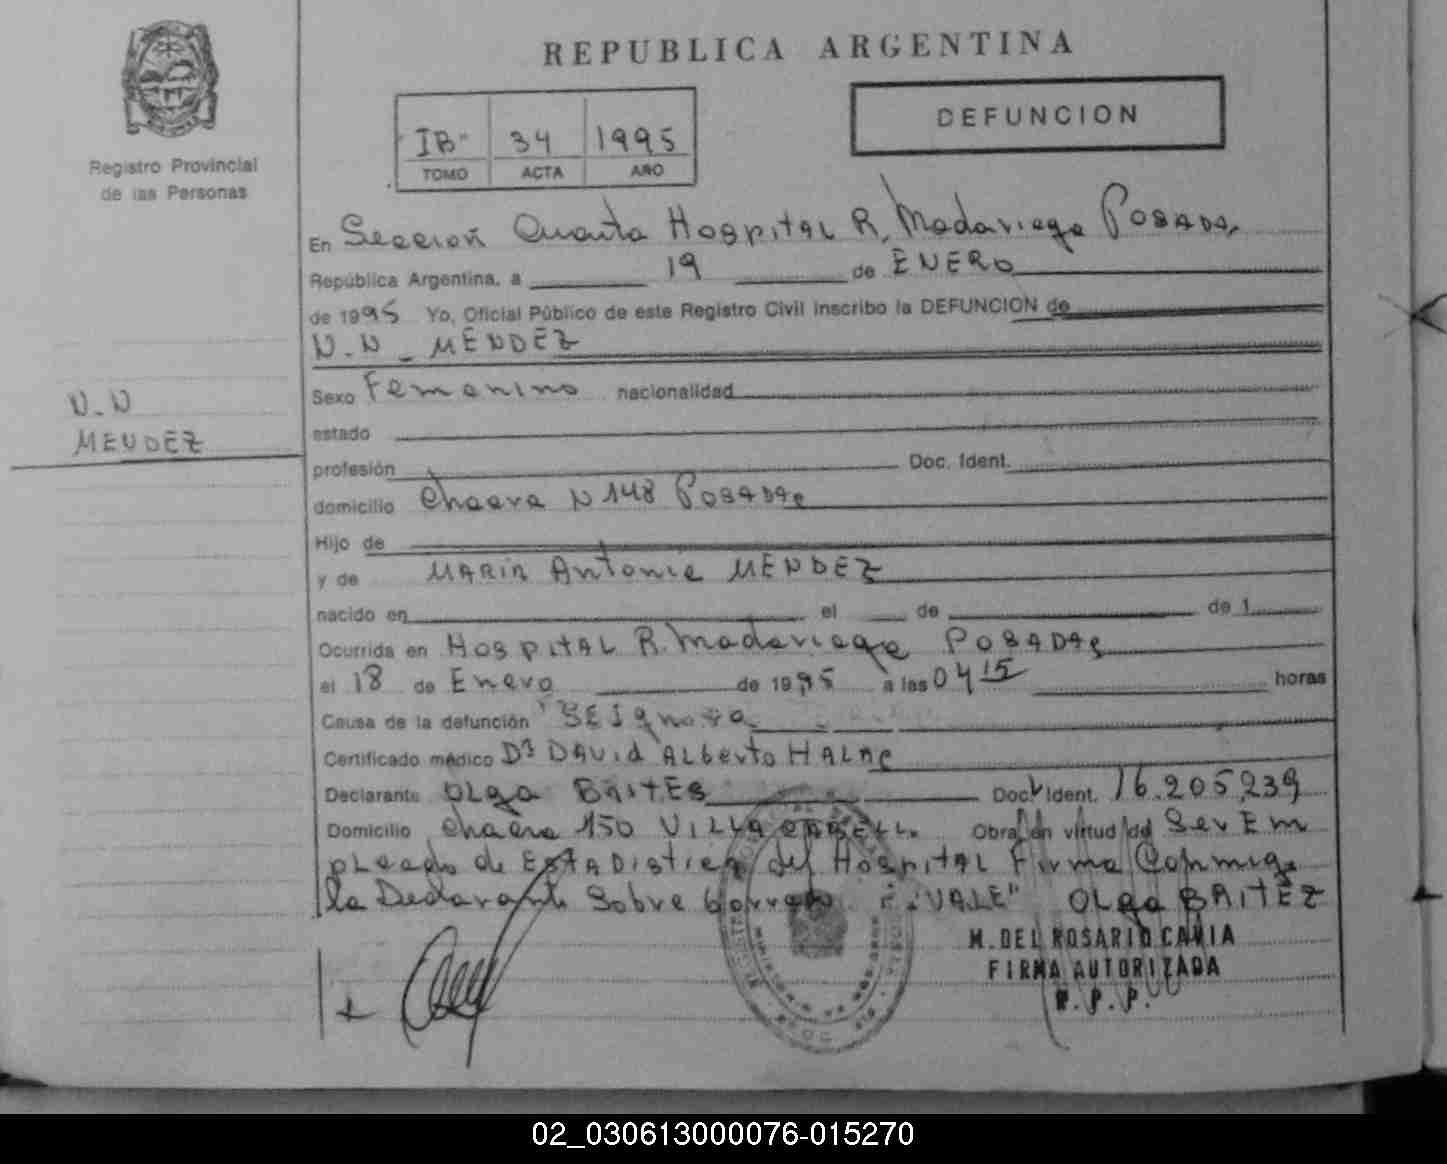 REPUBLICA ARGENTINA
DEFUNCION
IB" 34 1995
TOMO ACTA AÑO
Registro Provincial
de las Personas
En Sección Cuarta Hospital R. Madariaga POSADAS
República Argentina, a 19 de ENERO
de 1995 Yo, Oficial Público de este Registro Civil inscribo la DEFUNCION de
N.N - MENDEZ
Sexo Femenino nacionalidad
N.N
MENDEZ
estado
profesión Doc. Ident.
domicilio Chacra N 148 POSADAS
Hijo de
y de MARIA Antonia MENDEZ
nacido en el de de 1
Ocurrida en HOSPITAL R. Madariaga POSADAS
el 18 de Enero de 1995 a las 04 15 horas
Causa de la defunción SE Ignora
Certificado médico Dr DAVID ALberto HALAC
Declarante OLga BRITES Doc. Ident. 16.205.239
Domicilio Chacra 150 VILLA CABELLO Obra en virtud de Ser Em
pleado de ESTADistica del HOSPITAL Firma Conmigo
la Declarante Sobre borrado "VALE" OLga BRITEZ
M. DEL ROSARIO CAVIA
FIRMA AUTORIZADA
R.P.P.
02_030613000076-015270